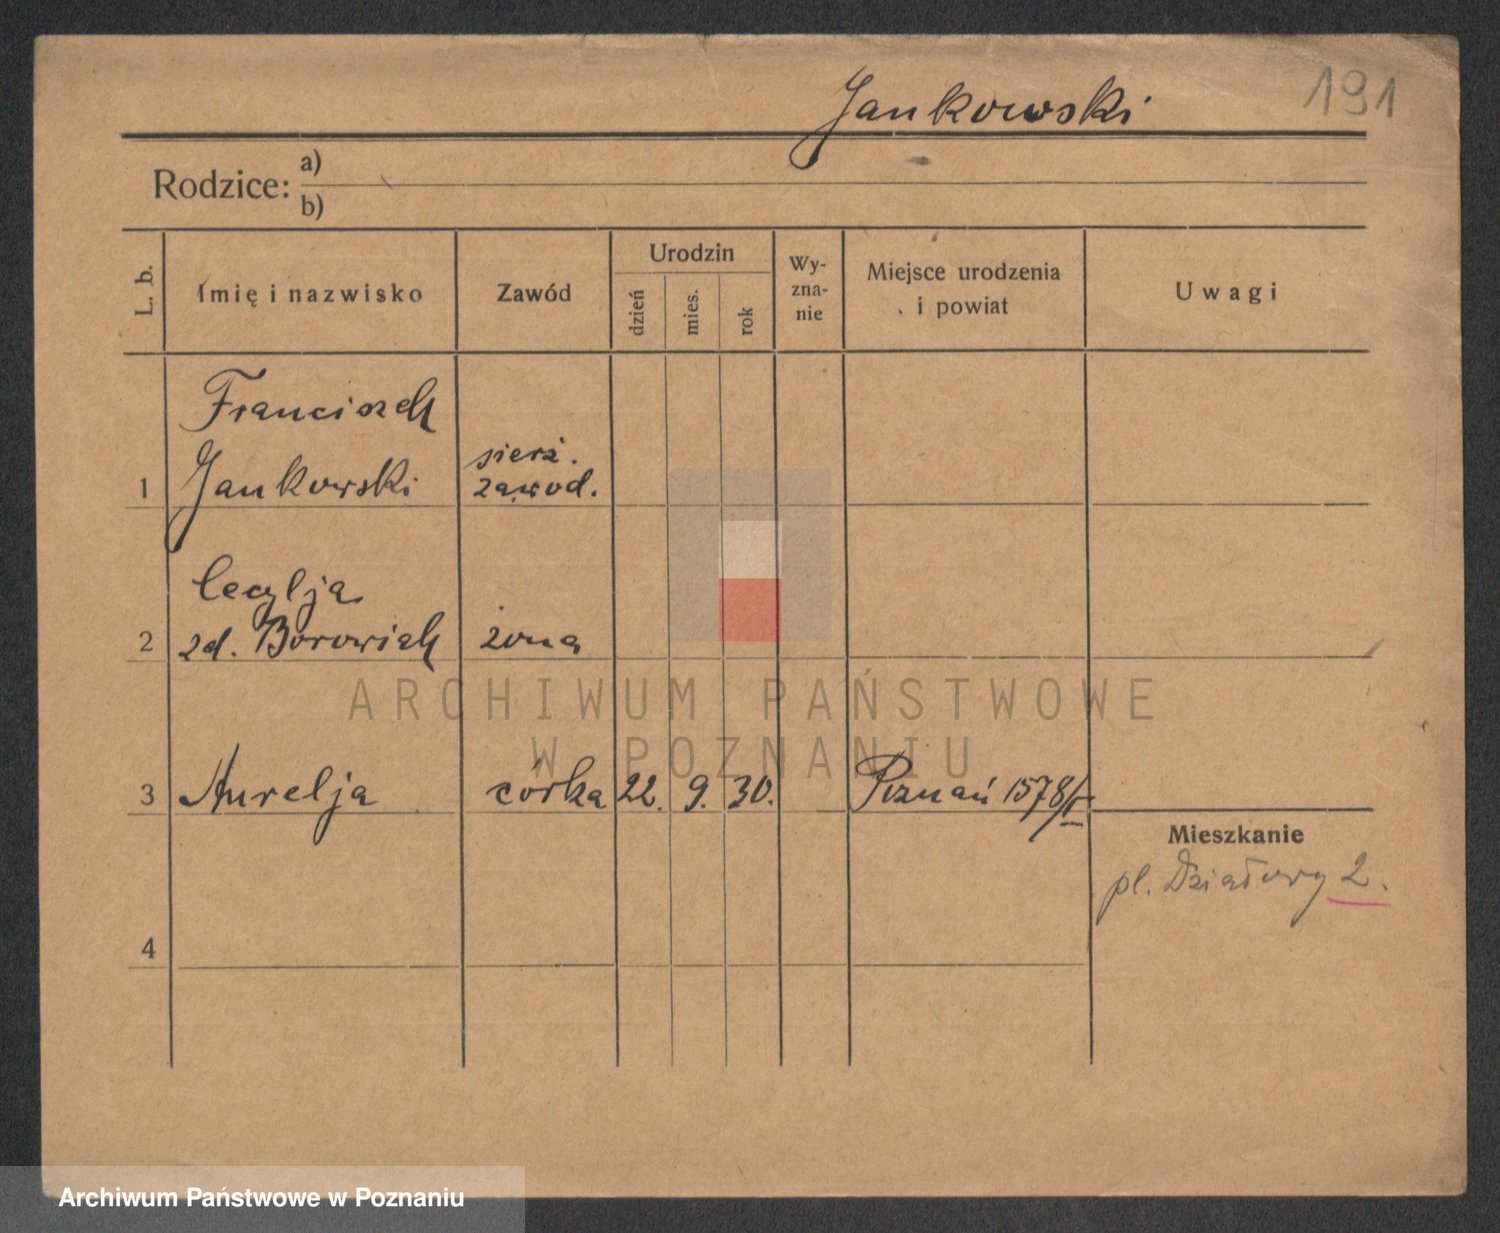 Jankowski
191
Rodzice: a)
b)
L. b.
Imię i nazwisko
Zawód
Urodzin
dzień
mies.
rok
Wy-
zna-
nie
Miejsce urodzenia
i powiat
Uwagi
Franciszek
1 Jankowski
sierż.
zawod.
Cecylja
2 zd. Borowiak żona
3 Aurelja córka 22. 9. 30. Poznań 1578/II
Mieszkanie
pl. Działowy 2.
4
ARCHIWUM PAŃSTWOWE
W POZNANIU
Archiwum Państwowe w Poznaniu